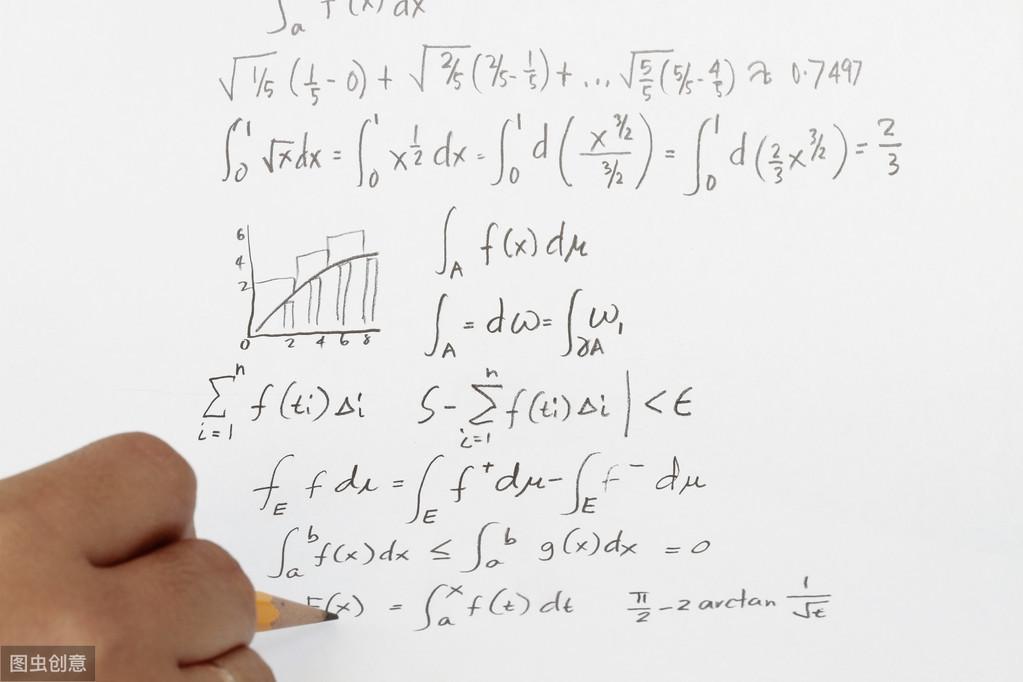 ∫a f(x) dx
√1/5 (1/5 - 0) + √2/5 (2/5 - 1/5) + ... √5/5 (5/5 - 4/5) ≈ 0.7497
∫₀¹ √x dx = ∫₀¹ x^1/2 dx = ∫₀¹ d(x^3/2 / 3/2) = ∫₀¹ d(2/3 x^3/2) = 2/3
6
4
2
0 2 4 6 8
∫A f(x) dμ
∫A = dω = ∫∂A ω,
n∑i=1 f(ti) Δi    S - n∑i=1 f(ti) Δi | < ε
∫E f dμ = ∫E f⁺ dμ - ∫E f⁻ dμ
∫a^b f(x) dx ≤ ∫a^b g(x) dx = 0
F(x) = ∫a^x f(t) dt    π/2 - 2 arctan 1/√t
图虫创意